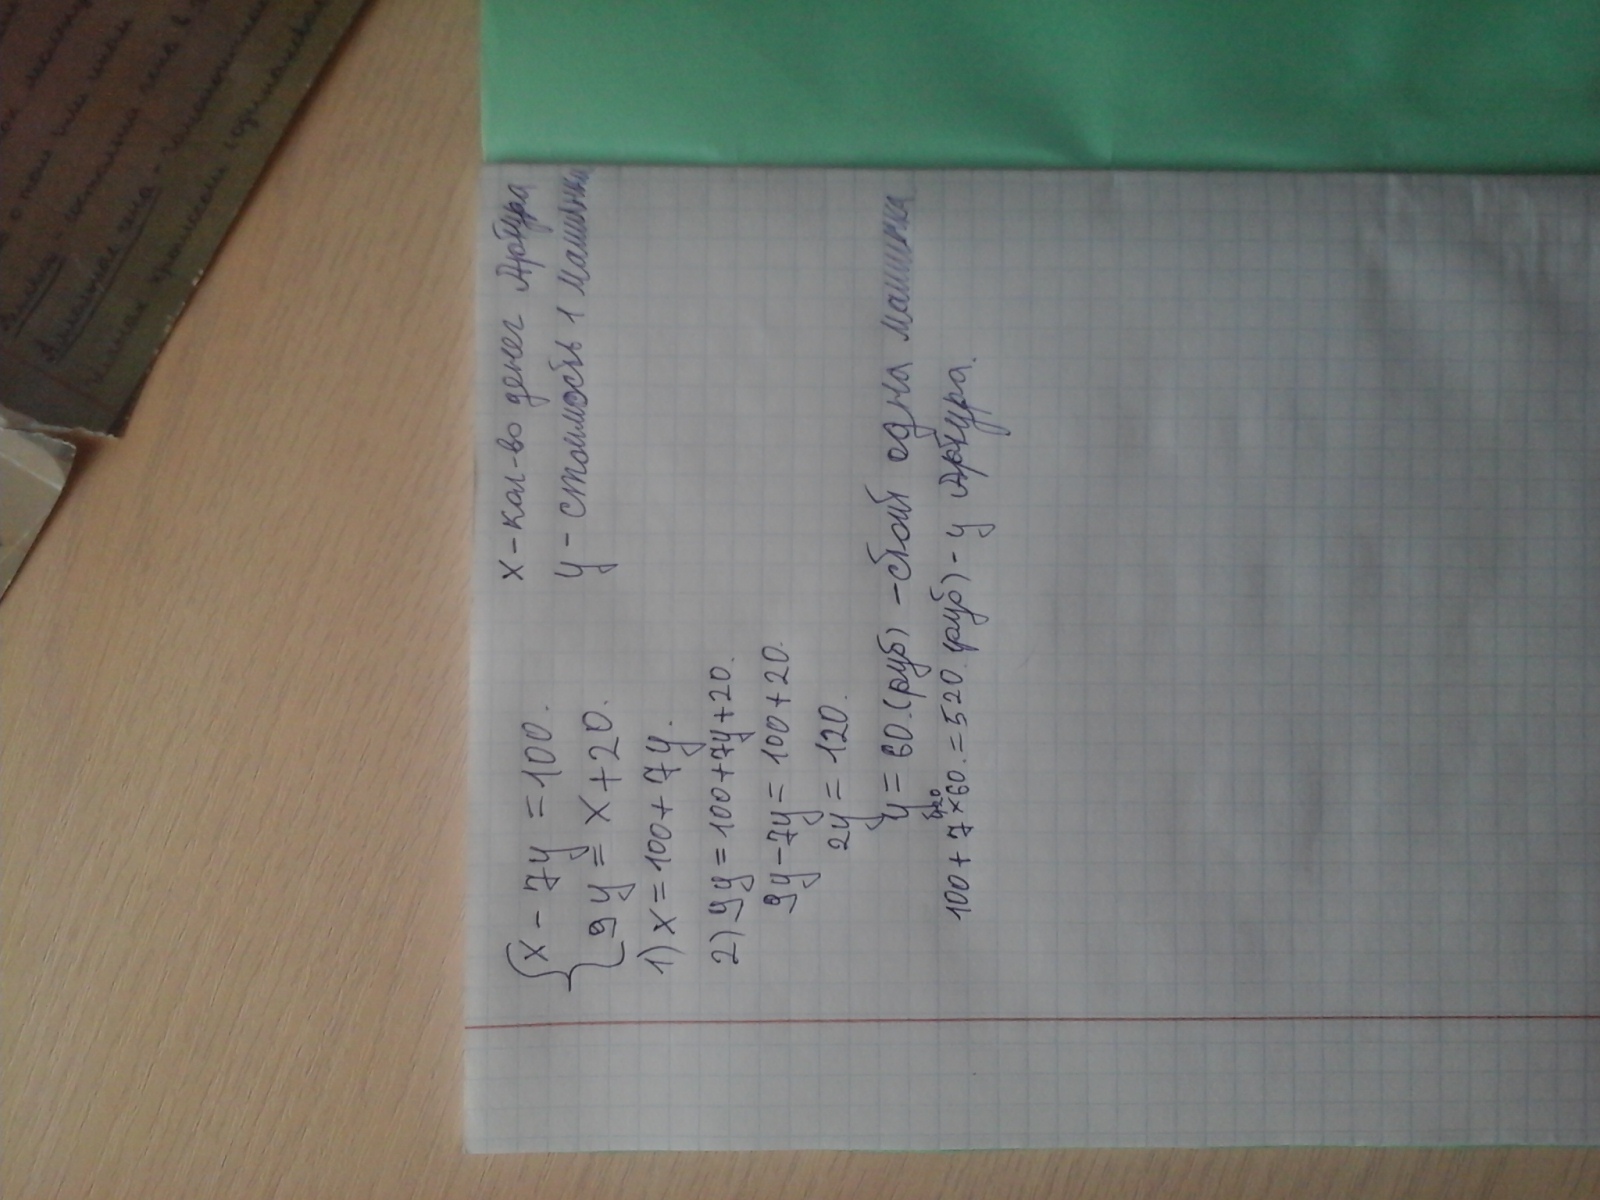 x - кол-во денег Артура
y - стоимость 1 машинки
{ x - 7y = 100.
9y = x + 20.
1) x = 100 + 7y.
2) 9y = 100 + 7y + 20.
9y - 7y = 100 + 20.
2y = 120.
y = 60. (руб) - стоит одна машинка
420
100 + 7 × 60. = 520. (руб) - у Артура.